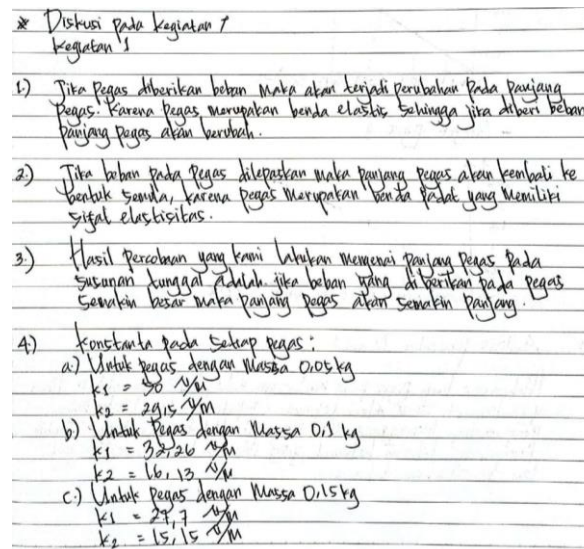 * Diskusi pada kegiatan 1
Kegiatan 1
1.) Jika Pegas diberikan beban maka akan terjadi perubahan Pada Panjang
Pegas. Karena Pegas merupakan benda elastis sehingga jika diberi beban
Panjang Pegas akan berubah.
2.) Jika beban pada Pegas dilepaskan maka panjang pegas akan kembali ke
bentuk semula, karena pegas merupakan benda Padat yang Memiliki
sifat elastisitas.
3.) Hasil percobaan yang kami lakukan mengenai panjang pegas Pada
susunan tunggal adalah jika beban yang diberikan pada Pegas
semakin besar maka Panjang Pegas akan semakin Panjang.
4.) Konstanta pada setiap pegas :
a.) Untuk pegas dengan Massa 0,05 kg
k1 = 50 N/m
k2 = 29,5 N/m
b) Untuk Pegas dengan Massa 0,1 kg
k1 = 32,26 N/m
k2 = 16,13 N/m
c.) Untuk Pegas dengan Massa 0,15 kg
k1 = 27,7 N/m
k2 = 15,15 N/m